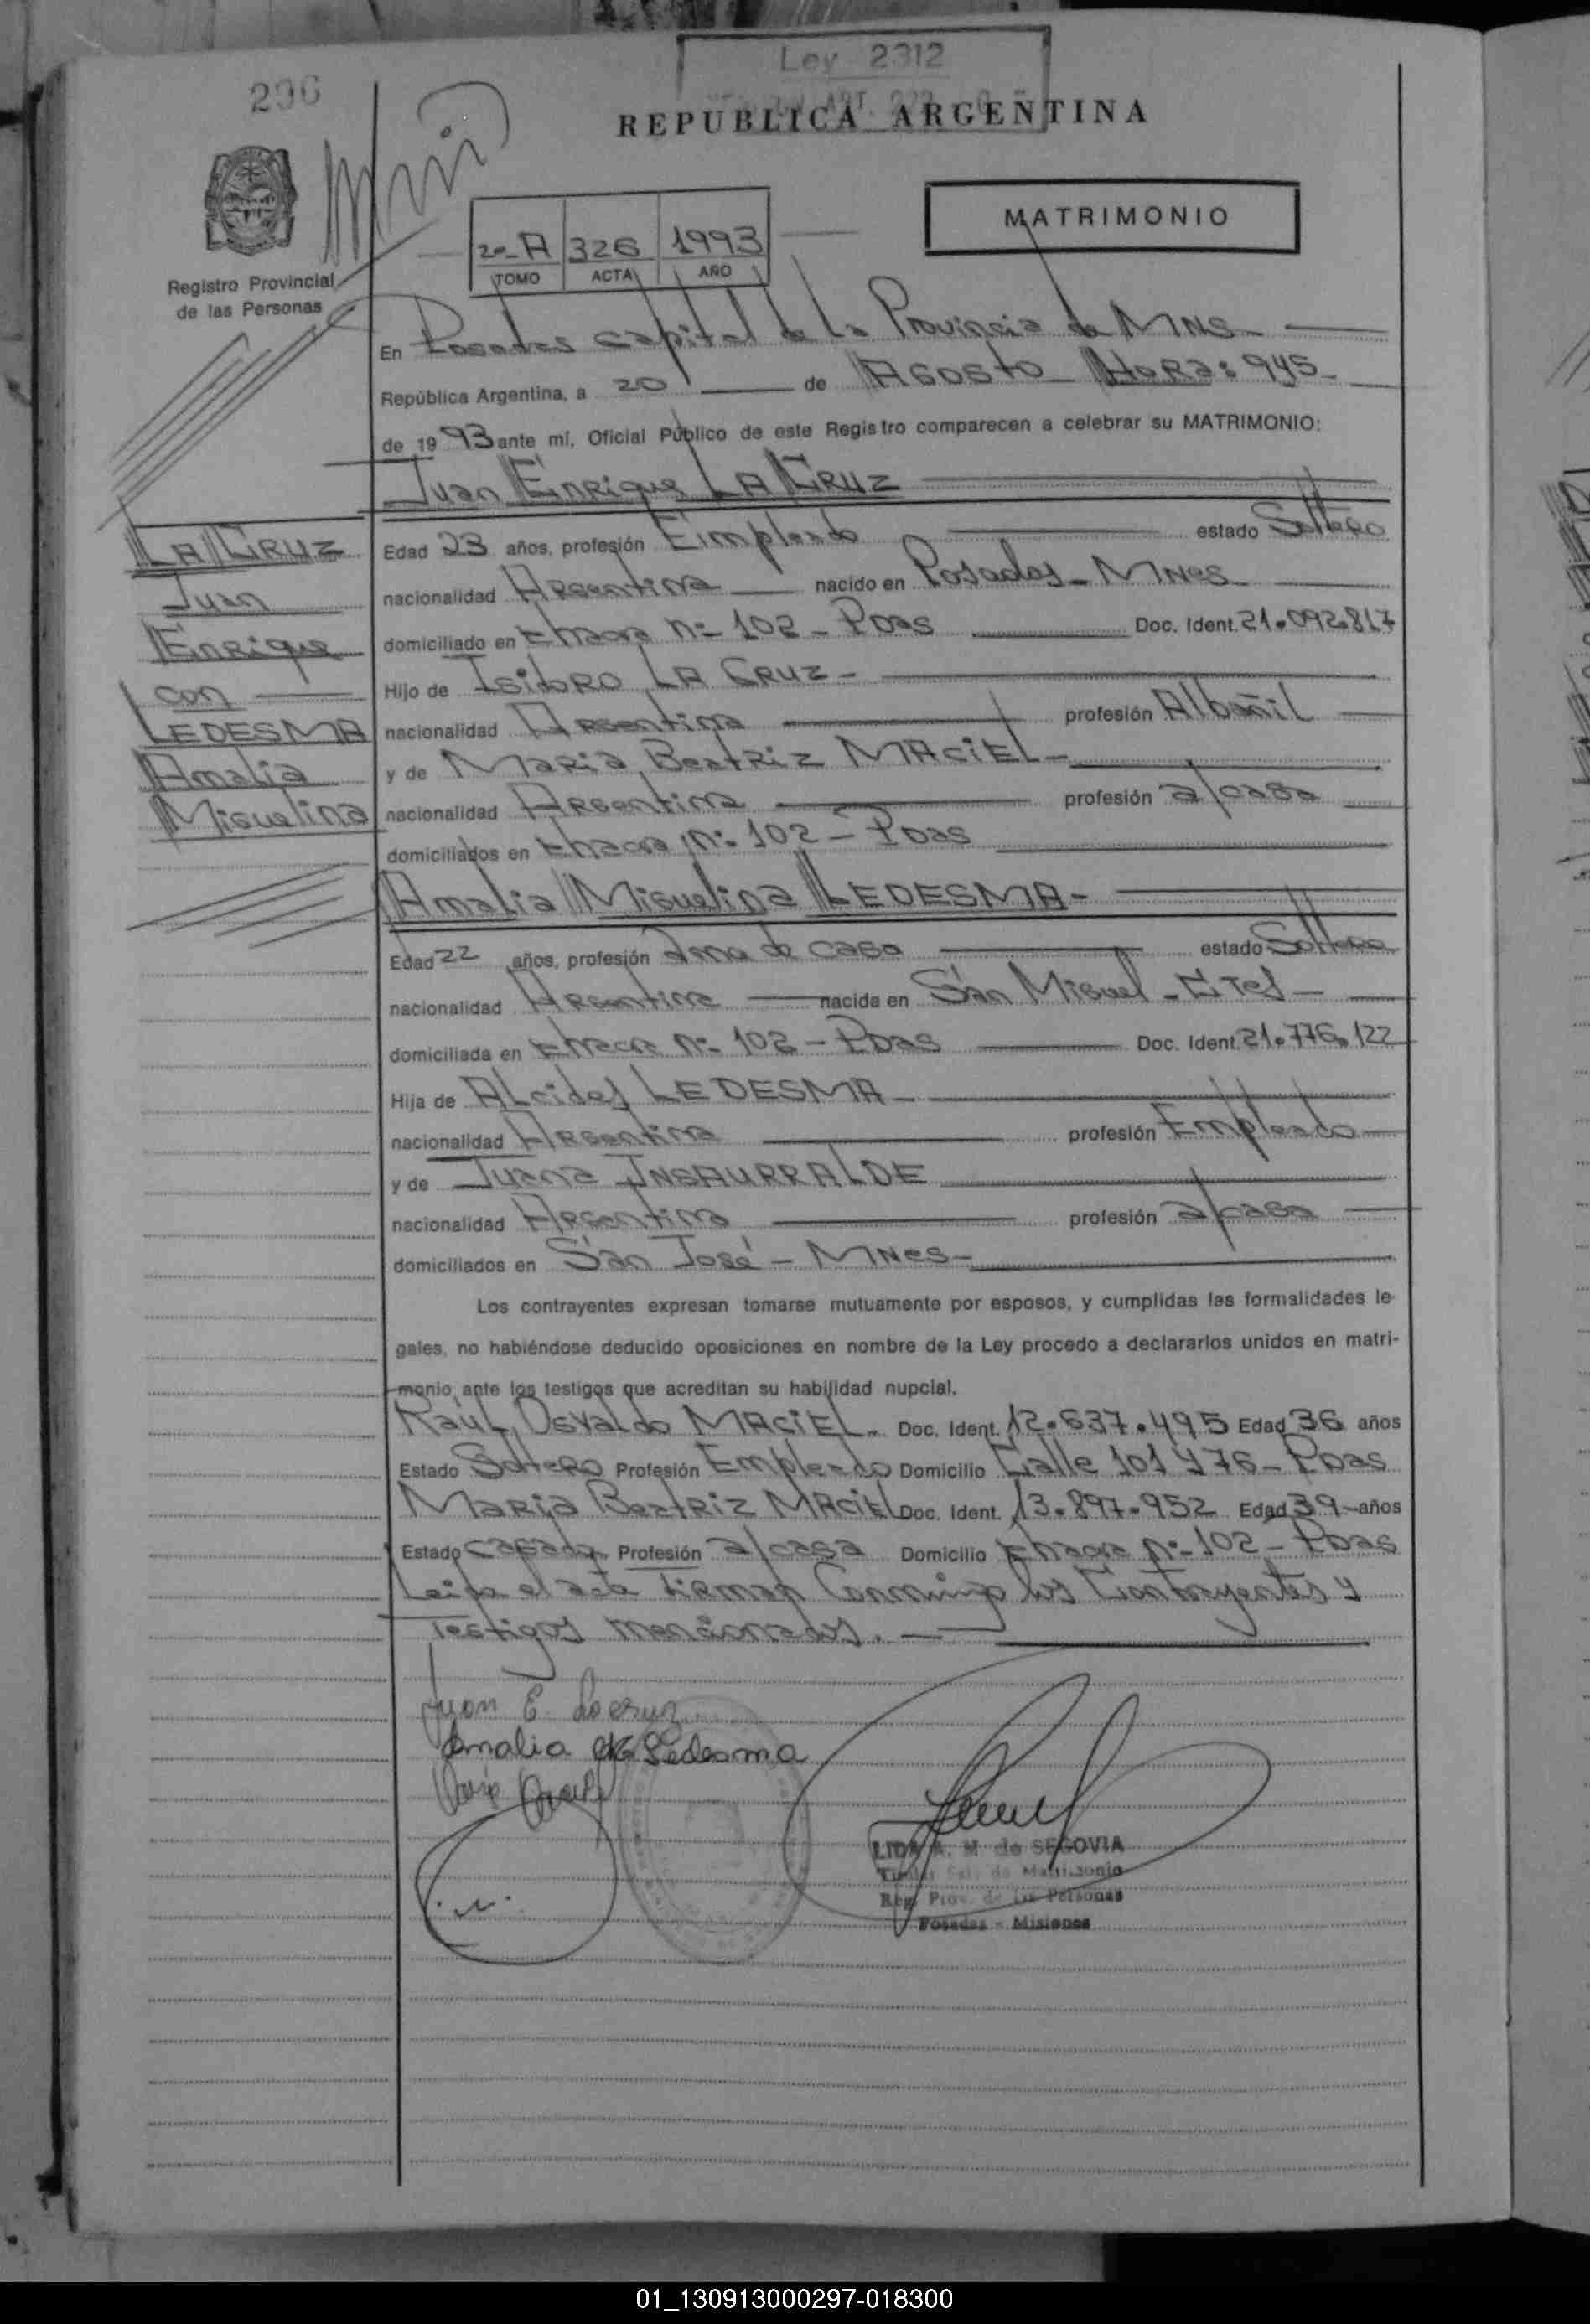 Ley 2312
296
REPUBLICA ARGENTINA
MATRIMONIO
2º A 326 1993
TOMO ACTA AÑO
Registro Provincial
de las Personas
En Posadas Capital de la Provincia de MNS
República Argentina, a 20 de Agosto Hora: 945
de 1993 ante mí, Oficial Público de este Registro comparecen a celebrar su MATRIMONIO:
Juan Enrique LA CRUZ
LA CRUZ
Juan
Enrique
con
LEDESMA
Amalia
Miguelina
Edad 23 años, profesión Empleado estado Soltero
nacionalidad Argentina nacido en Posadas - MNes
domiciliado en Chacra Nº 102 - Pdas Doc. Ident. 21.092.817
Hijo de Isidoro LA CRUZ -
nacionalidad Argentina profesión Albañil
y de Maria Beatriz MACIEL -
nacionalidad Argentina profesión a/casa
domiciliados en Chacra Nº 102 - Pdas
Amalia Miguelina LEDESMA -
Edad 22 años, profesión Ama de casa estado Soltera
nacionalidad Argentina nacida en San Miguel - Ctes -
domiciliada en Chacra Nº 102 - Pdas Doc. Ident. 21.776.122
Hija de Alcides LEDESMA -
nacionalidad Argentina profesión Empleado
y de Juana INSAURRALDE
nacionalidad Argentina profesión a/casa
domiciliados en San José - MNes -
Los contrayentes expresan tomarse mutuamente por esposos, y cumplidas las formalidades le-
gales, no habiéndose deducido oposiciones en nombre de la Ley procedo a declararlos unidos en matri-
monio ante los testigos que acreditan su habilidad nupcial.
Raúl Osvaldo MACIEL - Doc. Ident. 12.637.495 Edad 36 años
Estado Soltero Profesión Empleado Domicilio Calle 101 476 - Pdas
Maria Beatriz MACIEL Doc. Ident. 13.897.952 Edad 39 años
Estado Casada Profesión a/casa Domicilio Chacra Nº 102 - Pdas
Leida el acta firman Conmigo los Contrayentes y
Testigos mencionados. -
Juan E. Lacruz
Amalia Ledesma
LIDA A. M. de SEGOVIA
Titular Sala de Matrimonio
Reg. Prov. de las Personas
Posadas - Misiones
01_130913000297-018300